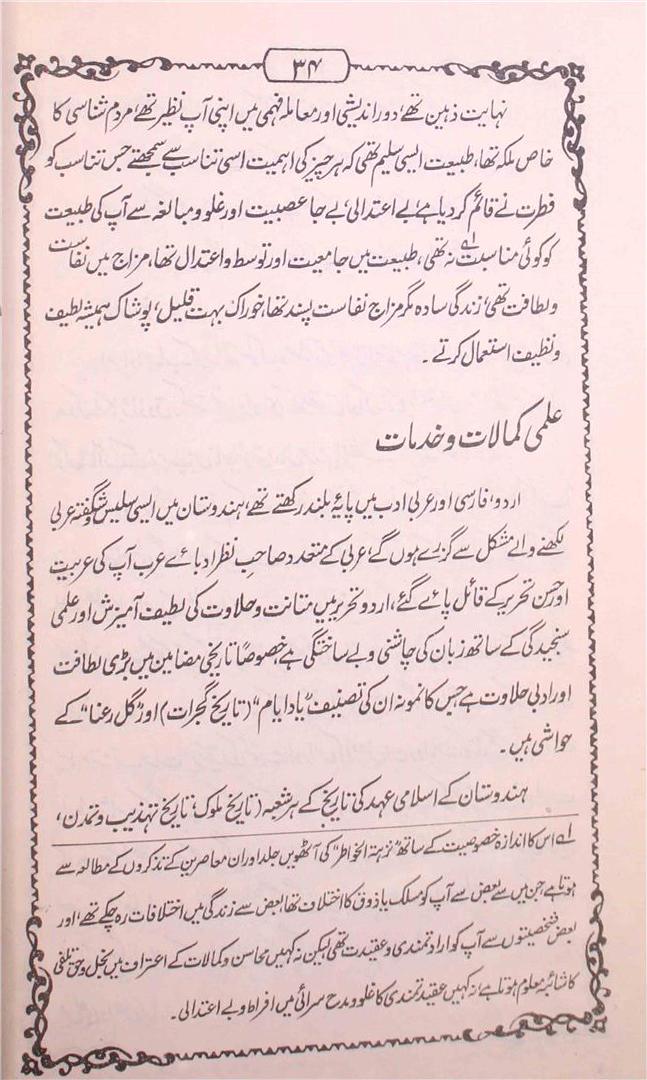 ۳۴
نہایت ذہین تھے، دور اندیشی اور معاملہ فہمی میں اپنی آپ نظیر تھے، مردم شناسی کا
خاص ملکہ تھا، طبیعت ایسی سلیم تھی کہ ہر چیز کی اہمیت اسی تناسب سے سمجھتے جس تناسب کو
فطرت نے قائم کر دیا ہے، بے اعتدالی، بے جا عصبیت اور غلو و مبالغہ سے آپ کی طبیعت
کو کوئی مناسبت لہ نہ تھی، طبیعت میں جامعیت اور توسط و اعتدال تھا، مزاج میں نفاست
و لطافت تھی، زندگی سادہ مگر مزاج نفاست پسند تھا، خوراک بہت قلیل، پوشاک ہمیشہ لطیف
و نظیف استعمال کرتے ۔
علمی کمالات و خدمات
اردو، فارسی اور عربی ادب میں پایۂ بلند رکھتے تھے، ہندوستان میں ایسی سلیس و شگفتہ عربی
لکھنے والے مشکل سے گزرے ہوں گے، عربی کے متعدد صاحبِ نظر ادبائے عرب آپ کی عربیت
اور حسن تحریر کے قائل پائے گئے، اردو تحریر میں متانت و حلاوت کی لطیف آمیزش اور علمی
سنجیدگی کے ساتھ زبان کی چاشنی و بے ساختگی ہے خصوصًا تاریخی مضامین میں بڑی لطافت
اور ادبی حلاوت ہے جس کا نمونہ ان کی تصنیف "یاد ایام" (تاریخ گجرات) اور "گل رعنا" کے
حواشی ہیں ۔
ہندوستان کے اسلامی عہد کی تاریخ کے ہر شعبہ (تاریخ ملوک، تاریخ تہذیب و تمدن،
لہ اس کا اندازہ خصوصیت کے ساتھ "نزہتہ الخواطر" کی آٹھویں جلد اور ان معاصرین کے تذکروں کے مطالعہ سے
ہوتا ہے جن میں سے بعض سے آپ کو مسلک یا ذوق کا اختلاف تھا، بعض سے زندگی میں اختلافات رہ چکے تھے، اور
بعض شخصیتوں سے آپ کو ارادتمندی و عقیدت تھی لیکن نہ کہیں محاسن و کمالات کے اعتراف میں بخل و حق تلفی
کا شائبہ معلوم ہوتا ہے، نہ کہیں عقیدتمندی کا غلو و مدح سرائی میں افراط و بے اعتدالی ۔